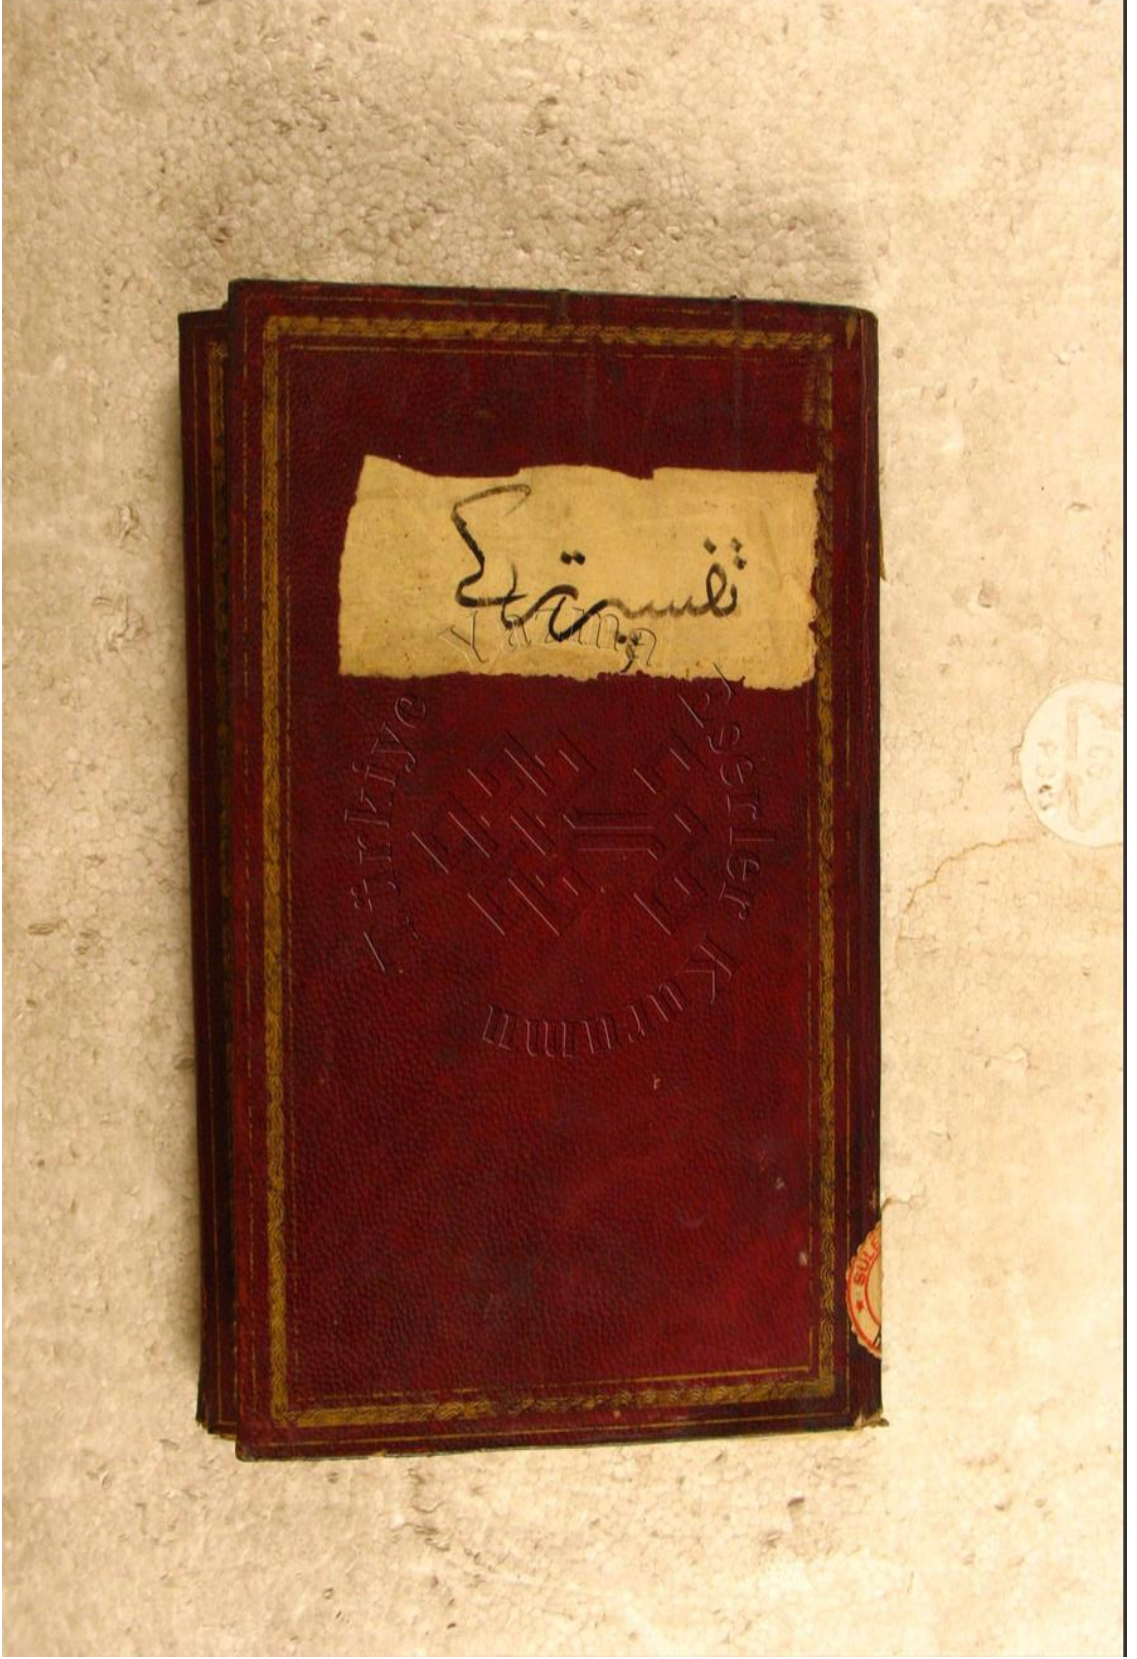 تفسير تركي
Türkiye Yazma Eserler Kurumu
SÜLE